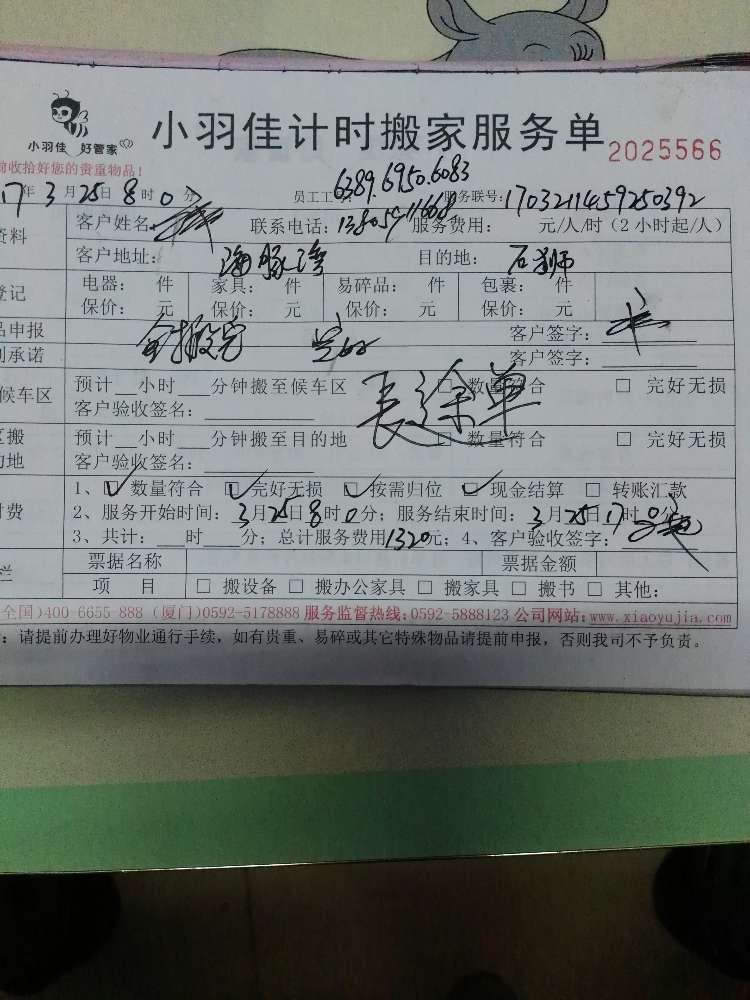 小羽佳 好管家
小羽佳计时搬家服务单 2025566
前收拾好您的贵重物品!
17年3月25日8时0分 员工工号: 6389.6950.6083 服务联号: 1703211459250392
资料 客户姓名: 联系电话: 服务费用: 元/人/时(2小时起/人)
客户地址: 海豚湾 目的地: 石狮
登记 电器: 件 家具: 件 易碎品: 件 包裹: 件
保价: 元 保价: 元 保价: 元 保价: 元
品申报 客户签字:
别承诺 客户签字:
候车区 预计__小时___分钟搬至候车区 □ 数量符合 □ 完好无损
客户验收签名:
长途单
区搬 预计__小时___分钟搬至目的地 □ 数量符合 □ 完好无损
的地 客户验收签名:
1、☑ 数量符合 ☑ 完好无损 ☑ 按需归位 ☑ 现金结算 □ 转账汇款
付费 2、服务开始时间: 3月25日8时0分; 服务结束时间: 3月25日17时0分;
3、共计: ___时___分; 总计服务费用1320元; 4、客户验收签字:
栏 票据名称 票据金额
项 目 □ 搬设备 □ 搬办公家具 □ 搬家具 □ 搬书 □ 其他:
全国)400-6655-888 (厦门)0592-5178888 服务监督热线:0592-5888123 公司网站:www.xiaoyujia.com
:请提前办理好物业通行手续,如有贵重、易碎或其它特殊物品请提前申报,否则我司不予负责。